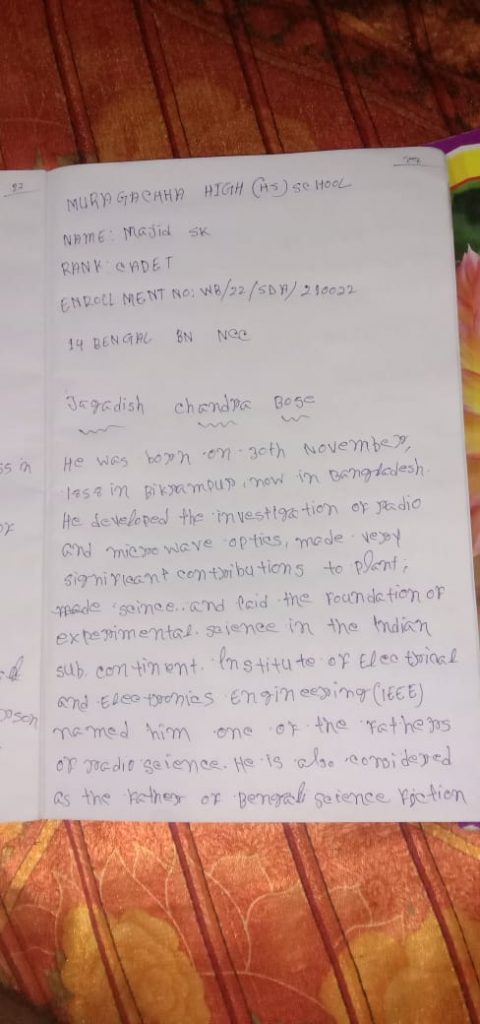 MURAGACHHA HIGH (HS) SCHOOL
NAME: Majid SK
RANK: CADET
ENROLLMENT NO: WB/22/SDA/210022
14 BENGAL BN NCC
Jagadish Chandra Bose
He was born on 30th November,
1858 in Bikrampur, now in Bangladesh.
He developed the investigation of radio
and microwave optics, made very
significant contributions to plant;
made seince.. and laid the foundation of
experimental science in the Indian
sub continent. Institute of Electrical
and Electronics Engineering (IEEE)
named him one of the fathers
of radio science. He is also considered
as the father of Bengali science fiction